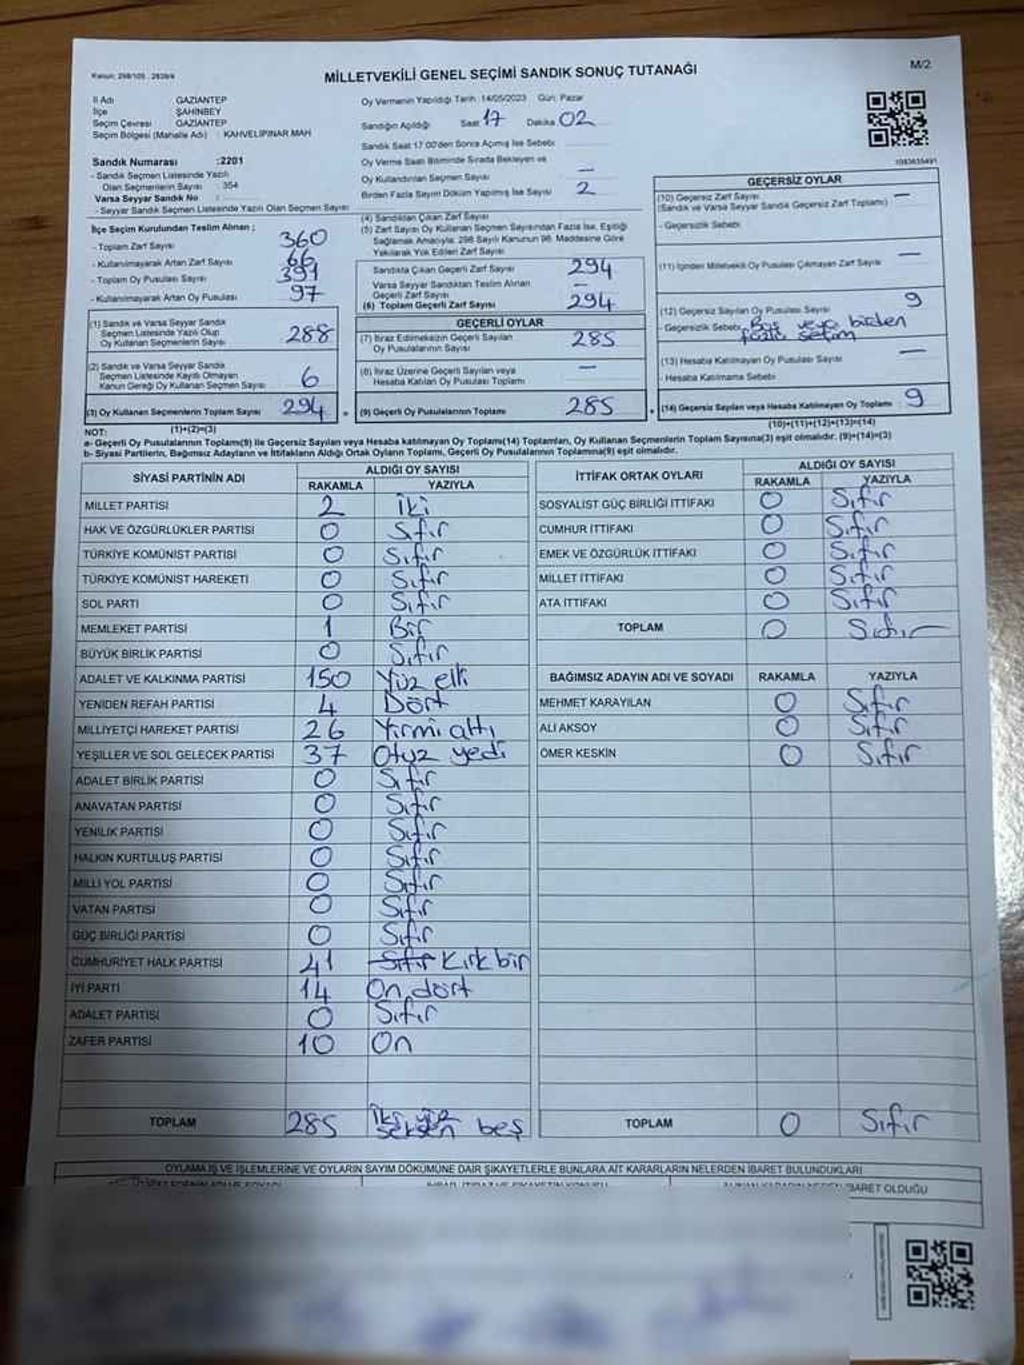 Kanun: 298/105 , 2839/4
MİLLETVEKİLİ GENEL SEÇİMİ SANDIK SONUÇ TUTANAĞI
M/2
İl Adı GAZİANTEP
İlçe ŞAHİNBEY
Seçim Çevresi GAZİANTEP
Seçim Bölgesi (Mahalle Adı) : KAHVELİPINAR MAH
Sandık Numarası :2201
- Sandık Seçmen Listesinde Yazılı
Olan Seçmenlerin Sayısı : 354
Varsa Seyyar Sandık No :
- Seyyar Sandık Seçmen Listesinde Yazılı Olan Seçmen Sayısı
Oy Vermenin Yapıldığı Tarih :14/05/2023 Gün: Pazar
Sandığın Açıldığı Saat 17 Dakika 02
Sandık Saat 17.00'den Sonra Açılmış İse Sebebi
Oy Verme Saati Bitiminde Sırada Bekleyen ve
Oy Kullandırılan Seçmen Sayısı —
Birden Fazla Sayım Döküm Yapılmış İse Sayısı 2
1083635491
İlçe Seçim Kurulundan Teslim Alınan ;
- Toplam Zarf Sayısı 360
- Kullanılmayarak Artan Zarf Sayısı 66
- Toplam Oy Pusulası Sayısı 391
- Kullanılmayarak Artan Oy Pusulası 97
(1) Sandık ve Varsa Seyyar Sandık
Seçmen Listesinde Yazılı Olup
Oy Kullanan Seçmenlerin Sayısı 288
(2) Sandık ve Varsa Seyyar Sandık
Seçmen Listesinde Kayıtlı Olmayan
Kanun Gereği Oy Kullanan Seçmen Sayısı 6
(3) Oy Kullanan Seçmenlerin Toplam Sayısı 294 =
(1)+(2)=(3)
(4) Sandıktan Çıkan Zarf Sayısı
(5) Zarf Sayısı Oy Kullanan Seçmen Sayısından Fazla İse, Eşitliği
Sağlamak Amacıyla, 298 Sayılı Kanunun 98. Maddesine Göre
Yakılarak Yok Edilen Zarf Sayısı
Sandıkta Çıkan Geçerli Zarf Sayısı 294
Varsa Seyyar Sandıktan Teslim Alınan
Geçerli Zarf Sayısı —
(6) Toplam Geçerli Zarf Sayısı 294
GEÇERLİ OYLAR
(7) İtiraz Edilmeksizin Geçerli Sayılan
Oy Pusulalarının Sayısı 285
(8) İtiraz Üzerine Geçerli Sayılan veya
Hesaba Katılan Oy Pusulası Toplamı —
(9) Geçerli Oy Pusulalarının Toplamı 285 +
GEÇERSİZ OYLAR
(10) Geçersiz Zarf Sayısı —
(Sandık ve Varsa Seyyar Sandık Geçersiz Zarf Toplamı)
- Geçersizlik Sebebi
(11) İçinden Milletvekili Oy Pusulası Çıkmayan Zarf Sayısı —
(12) Geçersiz Sayılan Oy Pusulası Sayısı 9
- Geçersizlik Sebebi Boş veya birden
fazla seçim
(13) Hesaba Katılmayan Oy Pusulası Sayısı —
- Hesaba Katılmama Sebebi
(14) Geçersiz Sayılan veya Hesaba Katılmayan Oy Toplamı 9
(10)+(11)+(12)+(13)=(14)
NOT:
a- Geçerli Oy Pusulalarının Toplamı(9) ile Geçersiz Sayılan veya Hesaba katılmayan Oy Toplamı(14) Toplamları, Oy Kullanan Seçmenlerin Toplam Sayısına(3) eşit olmalıdır. (9)+(14)=(3)
b- Siyasi Partilerin, Bağımsız Adayların ve İttifakların Aldığı Ortak Oyların Toplamı, Geçerli Oy Pusulalarının Toplamına(9) eşit olmalıdır.
SİYASİ PARTİNİN ADI ALDIĞI OY SAYISI
RAKAMLA YAZIYLA
MİLLET PARTİSİ 2 İki
HAK VE ÖZGÜRLÜKLER PARTİSİ 0 Sıfır
TÜRKİYE KOMÜNİST PARTİSİ 0 Sıfır
TÜRKİYE KOMÜNİST HAREKETİ 0 Sıfır
SOL PARTİ 0 Sıfır
MEMLEKET PARTİSİ 1 Bir
BÜYÜK BİRLİK PARTİSİ 0 Sıfır
ADALET VE KALKINMA PARTİSİ 150 Yüz elli
YENİDEN REFAH PARTİSİ 4 Dört
MİLLİYETÇİ HAREKET PARTİSİ 26 Yirmi altı
YEŞİLLER VE SOL GELECEK PARTİSİ 37 Otuz yedi
ADALET BİRLİK PARTİSİ 0 Sıfır
ANAVATAN PARTİSİ 0 Sıfır
YENİLİK PARTİSİ 0 Sıfır
HALKIN KURTULUŞ PARTİSİ 0 Sıfır
MİLLİ YOL PARTİSİ 0 Sıfır
VATAN PARTİSİ 0 Sıfır
GÜÇ BİRLİĞİ PARTİSİ 0 Sıfır
CUMHURİYET HALK PARTİSİ 41 Sıfır Kırk bir
İYİ PARTİ 14 On dört
ADALET PARTİSİ 0 Sıfır
ZAFER PARTİSİ 10 On
TOPLAM 285 İki yüz
seksen beş
İTTİFAK ORTAK OYLARI ALDIĞI OY SAYISI
RAKAMLA YAZIYLA
SOSYALİST GÜÇ BİRLİĞİ İTTİFAKI 0 Sıfır
CUMHUR İTTİFAKI 0 Sıfır
EMEK VE ÖZGÜRLÜK İTTİFAKI 0 Sıfır
MİLLET İTTİFAKI 0 Sıfır
ATA İTTİFAKI 0 Sıfır
TOPLAM 0 Sıfır
BAĞIMSIZ ADAYIN ADI VE SOYADI RAKAMLA YAZIYLA
MEHMET KARAYILAN 0 Sıfır
ALİ AKSOY 0 Sıfır
ÖMER KESKİN 0 Sıfır
TOPLAM 0 Sıfır
OYLAMA İŞ VE İŞLEMLERİNE VE OYLARIN SAYIM DÖKÜMÜNE DAİR ŞİKAYETLERLE BUNLARA AİT KARARLARIN NELERDEN İBARET BULUNDUKLARI
İBARET OLDUĞU